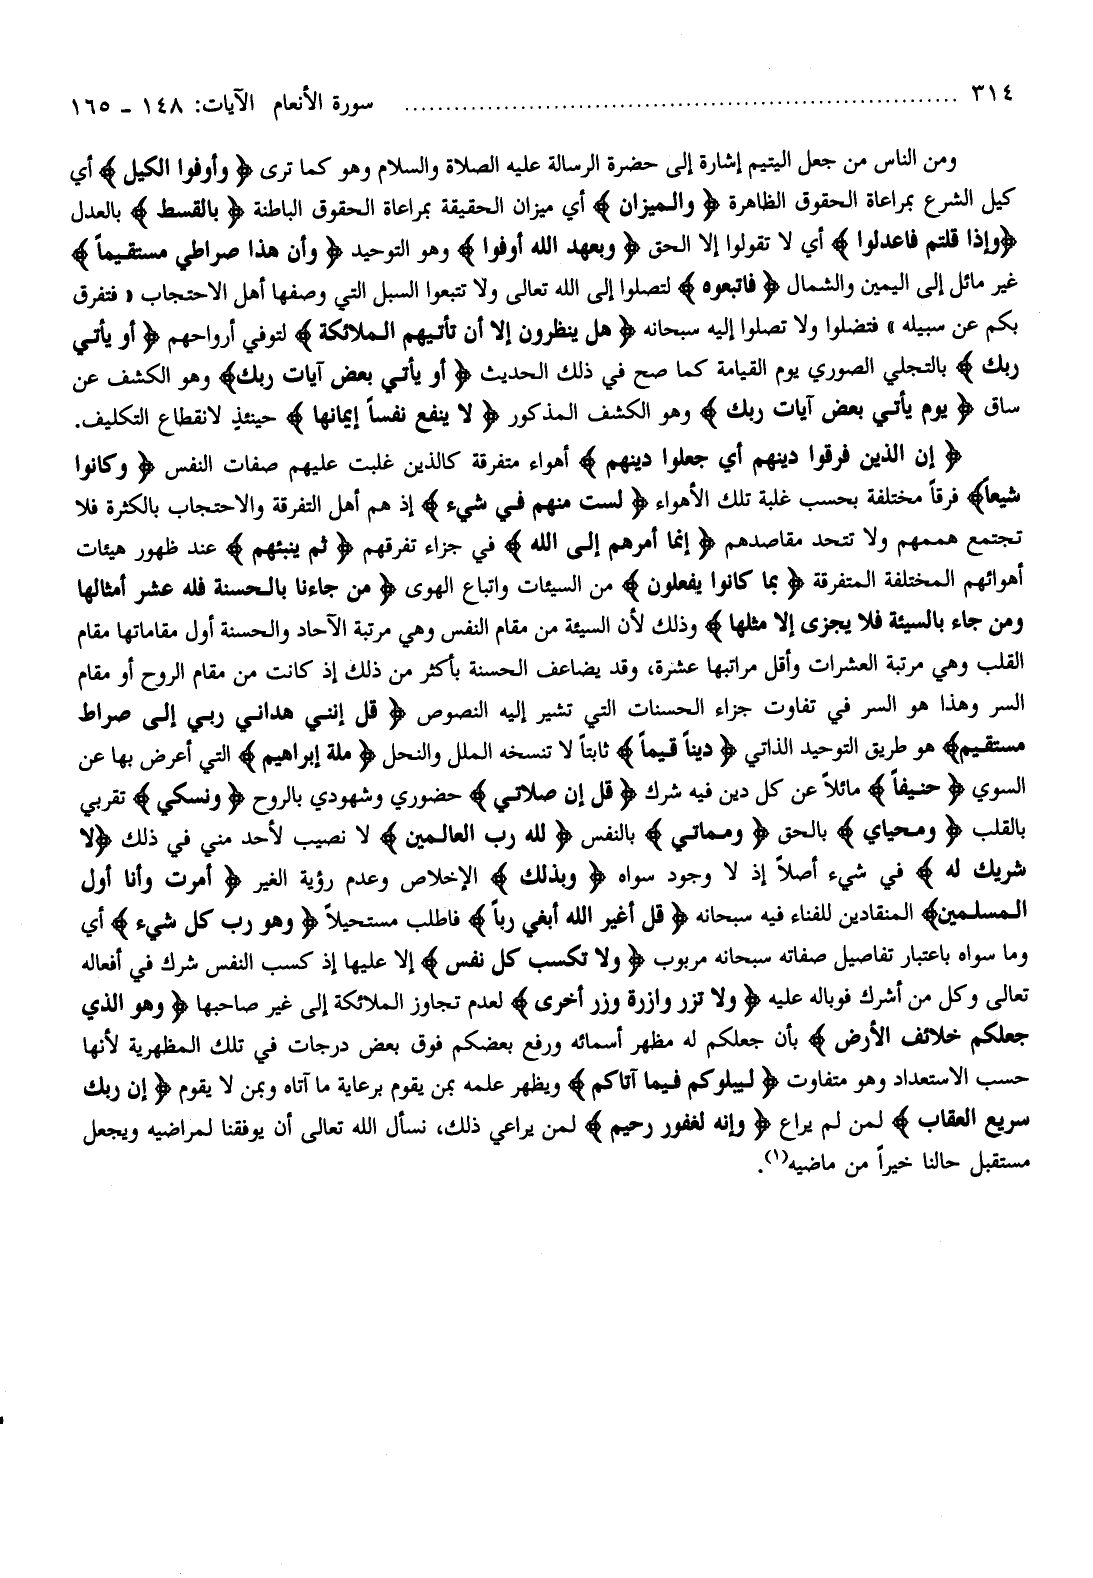 ٣١٤ ........ سورة الأنعام الآيات: ١٤٨ - ١٦٥
ومن الناس من جعل اليتيم إشارة إلى حضرة الرسالة عليه الصلاة والسلام وهو كما ترى ﴿ وأوفوا الكيل ﴾ أي
كيل الشرع بمراعاة الحقوق الظاهرة ﴿ والميزان ﴾ أي ميزان الحقيقة بمراعاة الحقوق الباطنة ﴿ بالقسط ﴾ بالعدل
﴿وإذا قلتم فاعدلوا ﴾ أي لا تقولوا إلا الحق ﴿ وبعهد الله أوفوا ﴾ وهو التوحيد ﴿ وأن هذا صراطي مستقيماً ﴾
غير مائل إلى اليمين والشمال ﴿ فاتبعوه ﴾ لتصلوا إلى الله تعالى ولا تتبعوا السبل التي وصفها أهل الاحتجاب « فتفرق
بكم عن سبيله » فتضلوا ولا تصلوا إليه سبحانه ﴿ هل ينظرون إلا أن تأتيهم الملائكة ﴾ لتوفي أرواحهم ﴿ أو يأتي
ربك ﴾ بالتجلي الصوري يوم القيامة كما صح في ذلك الحديث ﴿ أو يأتي بعض آيات ربك﴾ وهو الكشف عن
ساق ﴿ يوم يأتي بعض آيات ربك ﴾ وهو الكشف المذكور ﴿ لا ينفع نفساً إيمانها ﴾ حينئذٍ لانقطاع التكليف.
﴿ إن الذين فرقوا دينهم أي جعلوا دينهم ﴾ أهواء متفرقة كالذين غلبت عليهم صفات النفس ﴿ وكانوا
شيعاً﴾ فرقاً مختلفة بحسب غلبة تلك الأهواء ﴿ لست منهم في شيء ﴾ إذ هم أهل التفرقة والاحتجاب بالكثرة فلا
تجتمع هممهم ولا تتحد مقاصدهم ﴿ إنما أمرهم إلى الله ﴾ في جزاء تفرقهم ﴿ ثم ينبئهم ﴾ عند ظهور هيئات
أهوائهم المختلفة المتفرقة ﴿ بما كانوا يفعلون ﴾ من السيئات واتباع الهوى ﴿ من جاءنا بالحسنة فله عشر أمثالها
ومن جاء بالسيئة فلا يجزى إلا مثلها ﴾ وذلك لأن السيئة من مقام النفس وهي مرتبة الآحاد والحسنة أول مقاماتها مقام
القلب وهي مرتبة العشرات وأقل مراتبها عشرة، وقد يضاعف الحسنة بأكثر من ذلك إذ كانت من مقام الروح أو مقام
السر وهذا هو السر في تفاوت جزاء الحسنات التي تشير إليه النصوص ﴿ قل إنني هداني ربي إلى صراط
مستقيم﴾ هو طريق التوحيد الذاتي ﴿ ديناً قيماً ﴾ ثابتاً لا تنسخه الملل والنحل ﴿ ملة إبراهيم ﴾ التي أعرض بها عن
السوي ﴿ حنيفاً ﴾ مائلاً عن كل دين فيه شرك ﴿ قل إن صلاتي ﴾ حضوري وشهودي بالروح ﴿ ونسكي ﴾ تقربي
بالقلب ﴿ ومحياي ﴾ بالحق ﴿ ومماتي ﴾ بالنفس ﴿ لله رب العالمين ﴾ لا نصيب لأحد مني في ذلك ﴿لا
شريك له ﴾ في شيء أصلاً إذ لا وجود سواه ﴿ وبذلك ﴾ الإخلاص وعدم رؤية الغير ﴿ أمرت وأنا أول
المسلمين﴾ المنقادين للفناء فيه سبحانه ﴿ قل أغير الله أبغي رباً ﴾ فاطلب مستحيلاً ﴿ وهو رب كل شيء ﴾ أي
وما سواه باعتبار تفاصيل صفاته سبحانه مربوب ﴿ ولا تكسب كل نفس ﴾ إلا عليها إذ كسب النفس شرك في أفعاله
تعالى وكل من أشرك فوباله عليه ﴿ ولا تزر وازرة وزر أخرى ﴾ لعدم تجاوز الملائكة إلى غير صاحبها ﴿ وهو الذي
جعلكم خلائف الأرض ﴾ بأن جعلكم له مظهر أسمائه ورفع بعضكم فوق بعض درجات في تلك المظهرية لأنها
حسب الاستعداد وهو متفاوت ﴿ ليبلوكم فيما آتاكم ﴾ ويظهر علمه بمن يقوم برعاية ما آتاه وبمن لا يقوم ﴿ إن ربك
سريع العقاب ﴾ لمن لم يراع ﴿ وإنه لغفور رحيم ﴾ لمن يراعي ذلك، نسأل الله تعالى أن يوفقنا لمراضيه ويجعل
مستقبل حالنا خيراً من ماضيه(١).